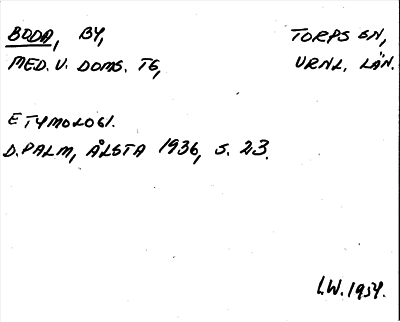 BODA, BY, TORPS SN,
MED. V. DOMS. TG, VRNL. LÄN.
ETYMOLOGI.
D. PALM, ÅLSTA 1936, S. 23.
I.W. 1954.